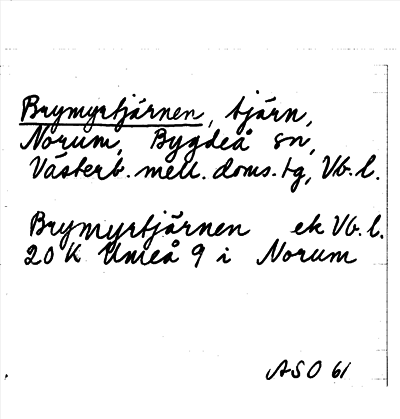 Brymyrtjärnen, tjärn,
Norum, Bygdeå sn,
Västerb. mell. doms. tg, Vb. l.
Brymyrtjärnen ek Vb. l.
20 K Umeå 9 i Norum
ASO 61